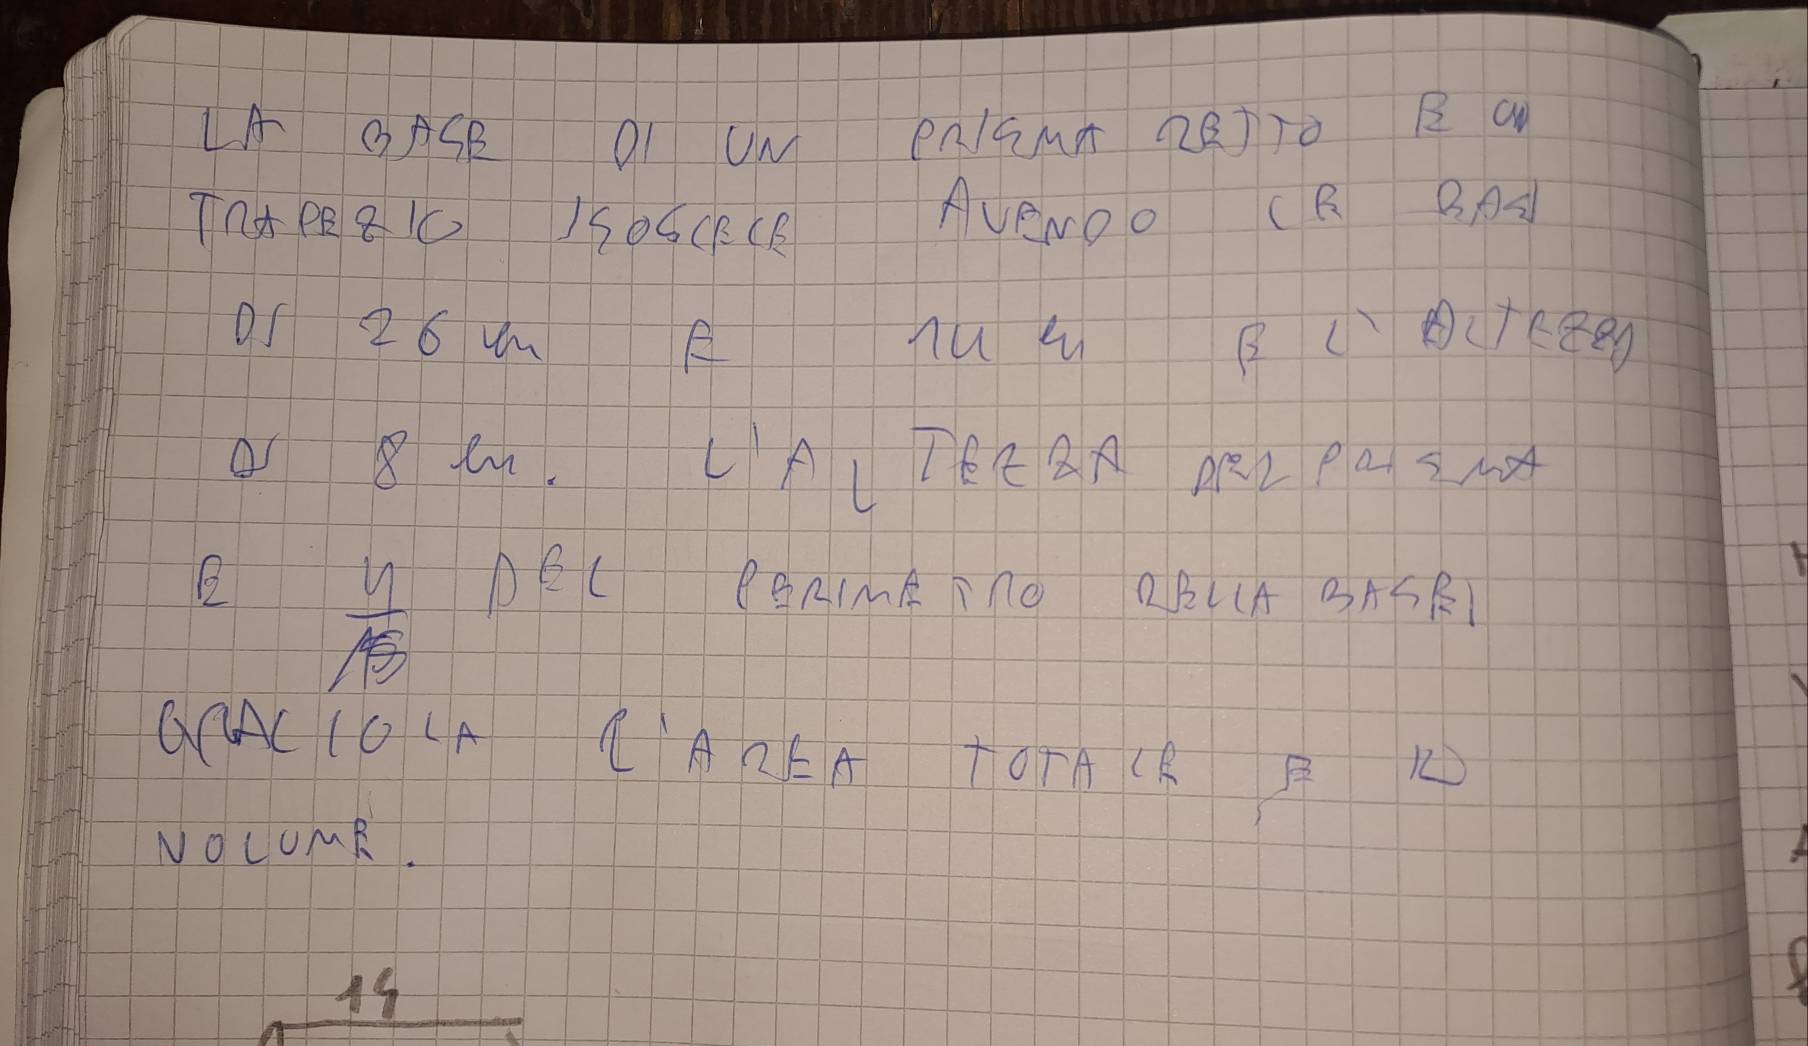 LA BASE DI UN PRISMA RETTO E UN
TRAPEZIO ISOSCELE AVENDO LE BASI
DI 26 cm E 14 cm E L'ALTEZZA
DI 8 cm. L'ALTEZZA DEL PRISMA
E 4/15 DEL PERIMETRO DELLA BASE,
CALCOLA L'AREA TOTALE E IL
VOLUME.
14